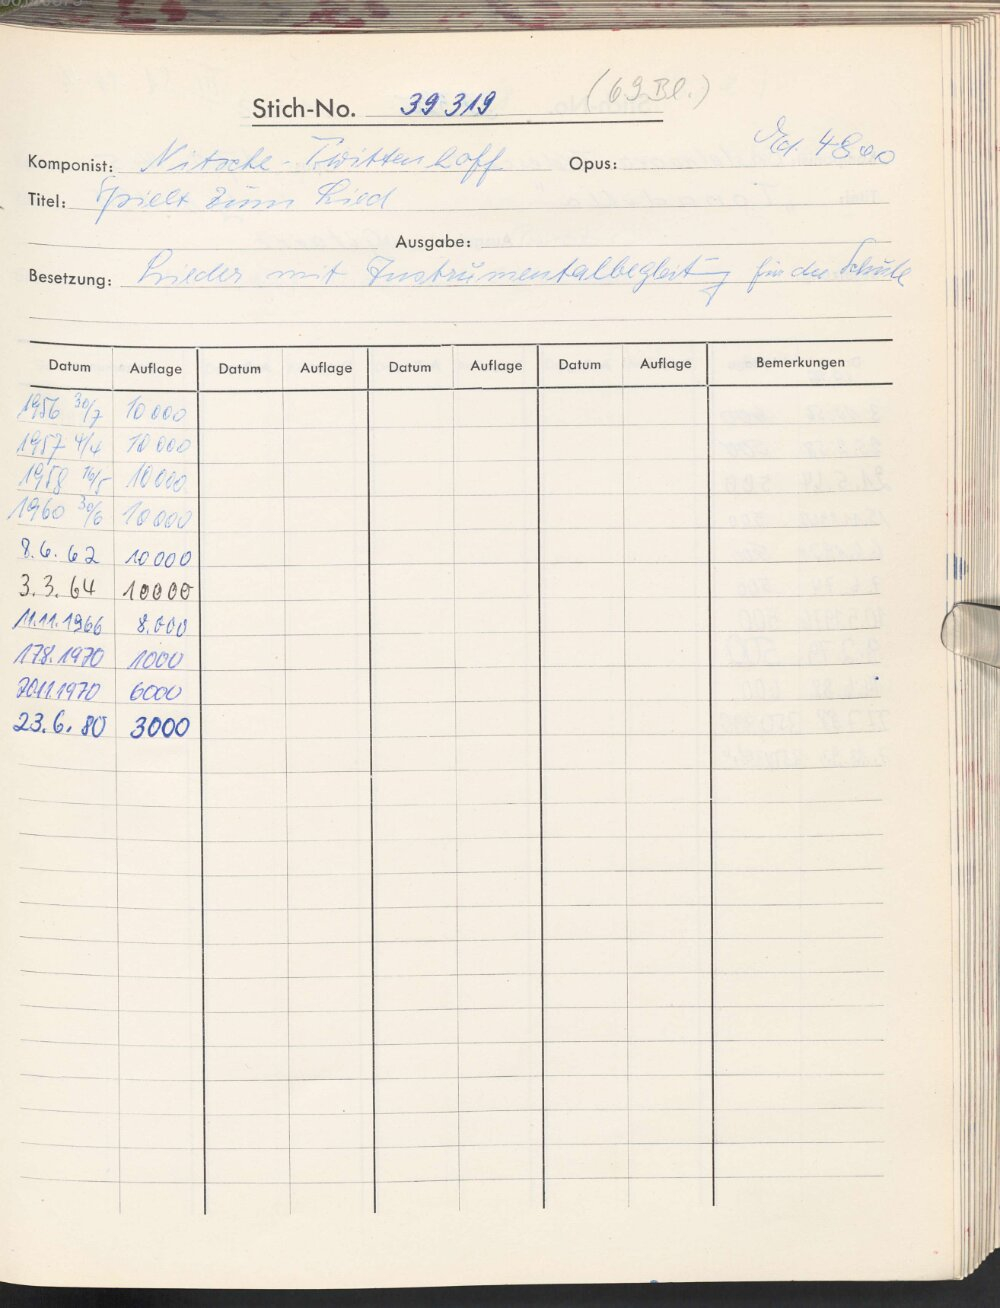 Stich-No. 39319 (69 Bl.)
Ed 4800
Komponist: Nitsche - Twittenhoff Opus:
Titel: Spielt zum Lied
Ausgabe:
Besetzung: Lieder mit Instrumentalbegleitung für die Schule
Datum Auflage Datum Auflage Datum Auflage Datum Auflage Bemerkungen
1956 30/7 10000
1957 4/4 10000
1958 16/5 10000
1960 30/6 10000
8.6.62 10000
3.3.64 10000
11.11.1966 8.000
178.1970 1000
20111970 6000
23.6.80 3000